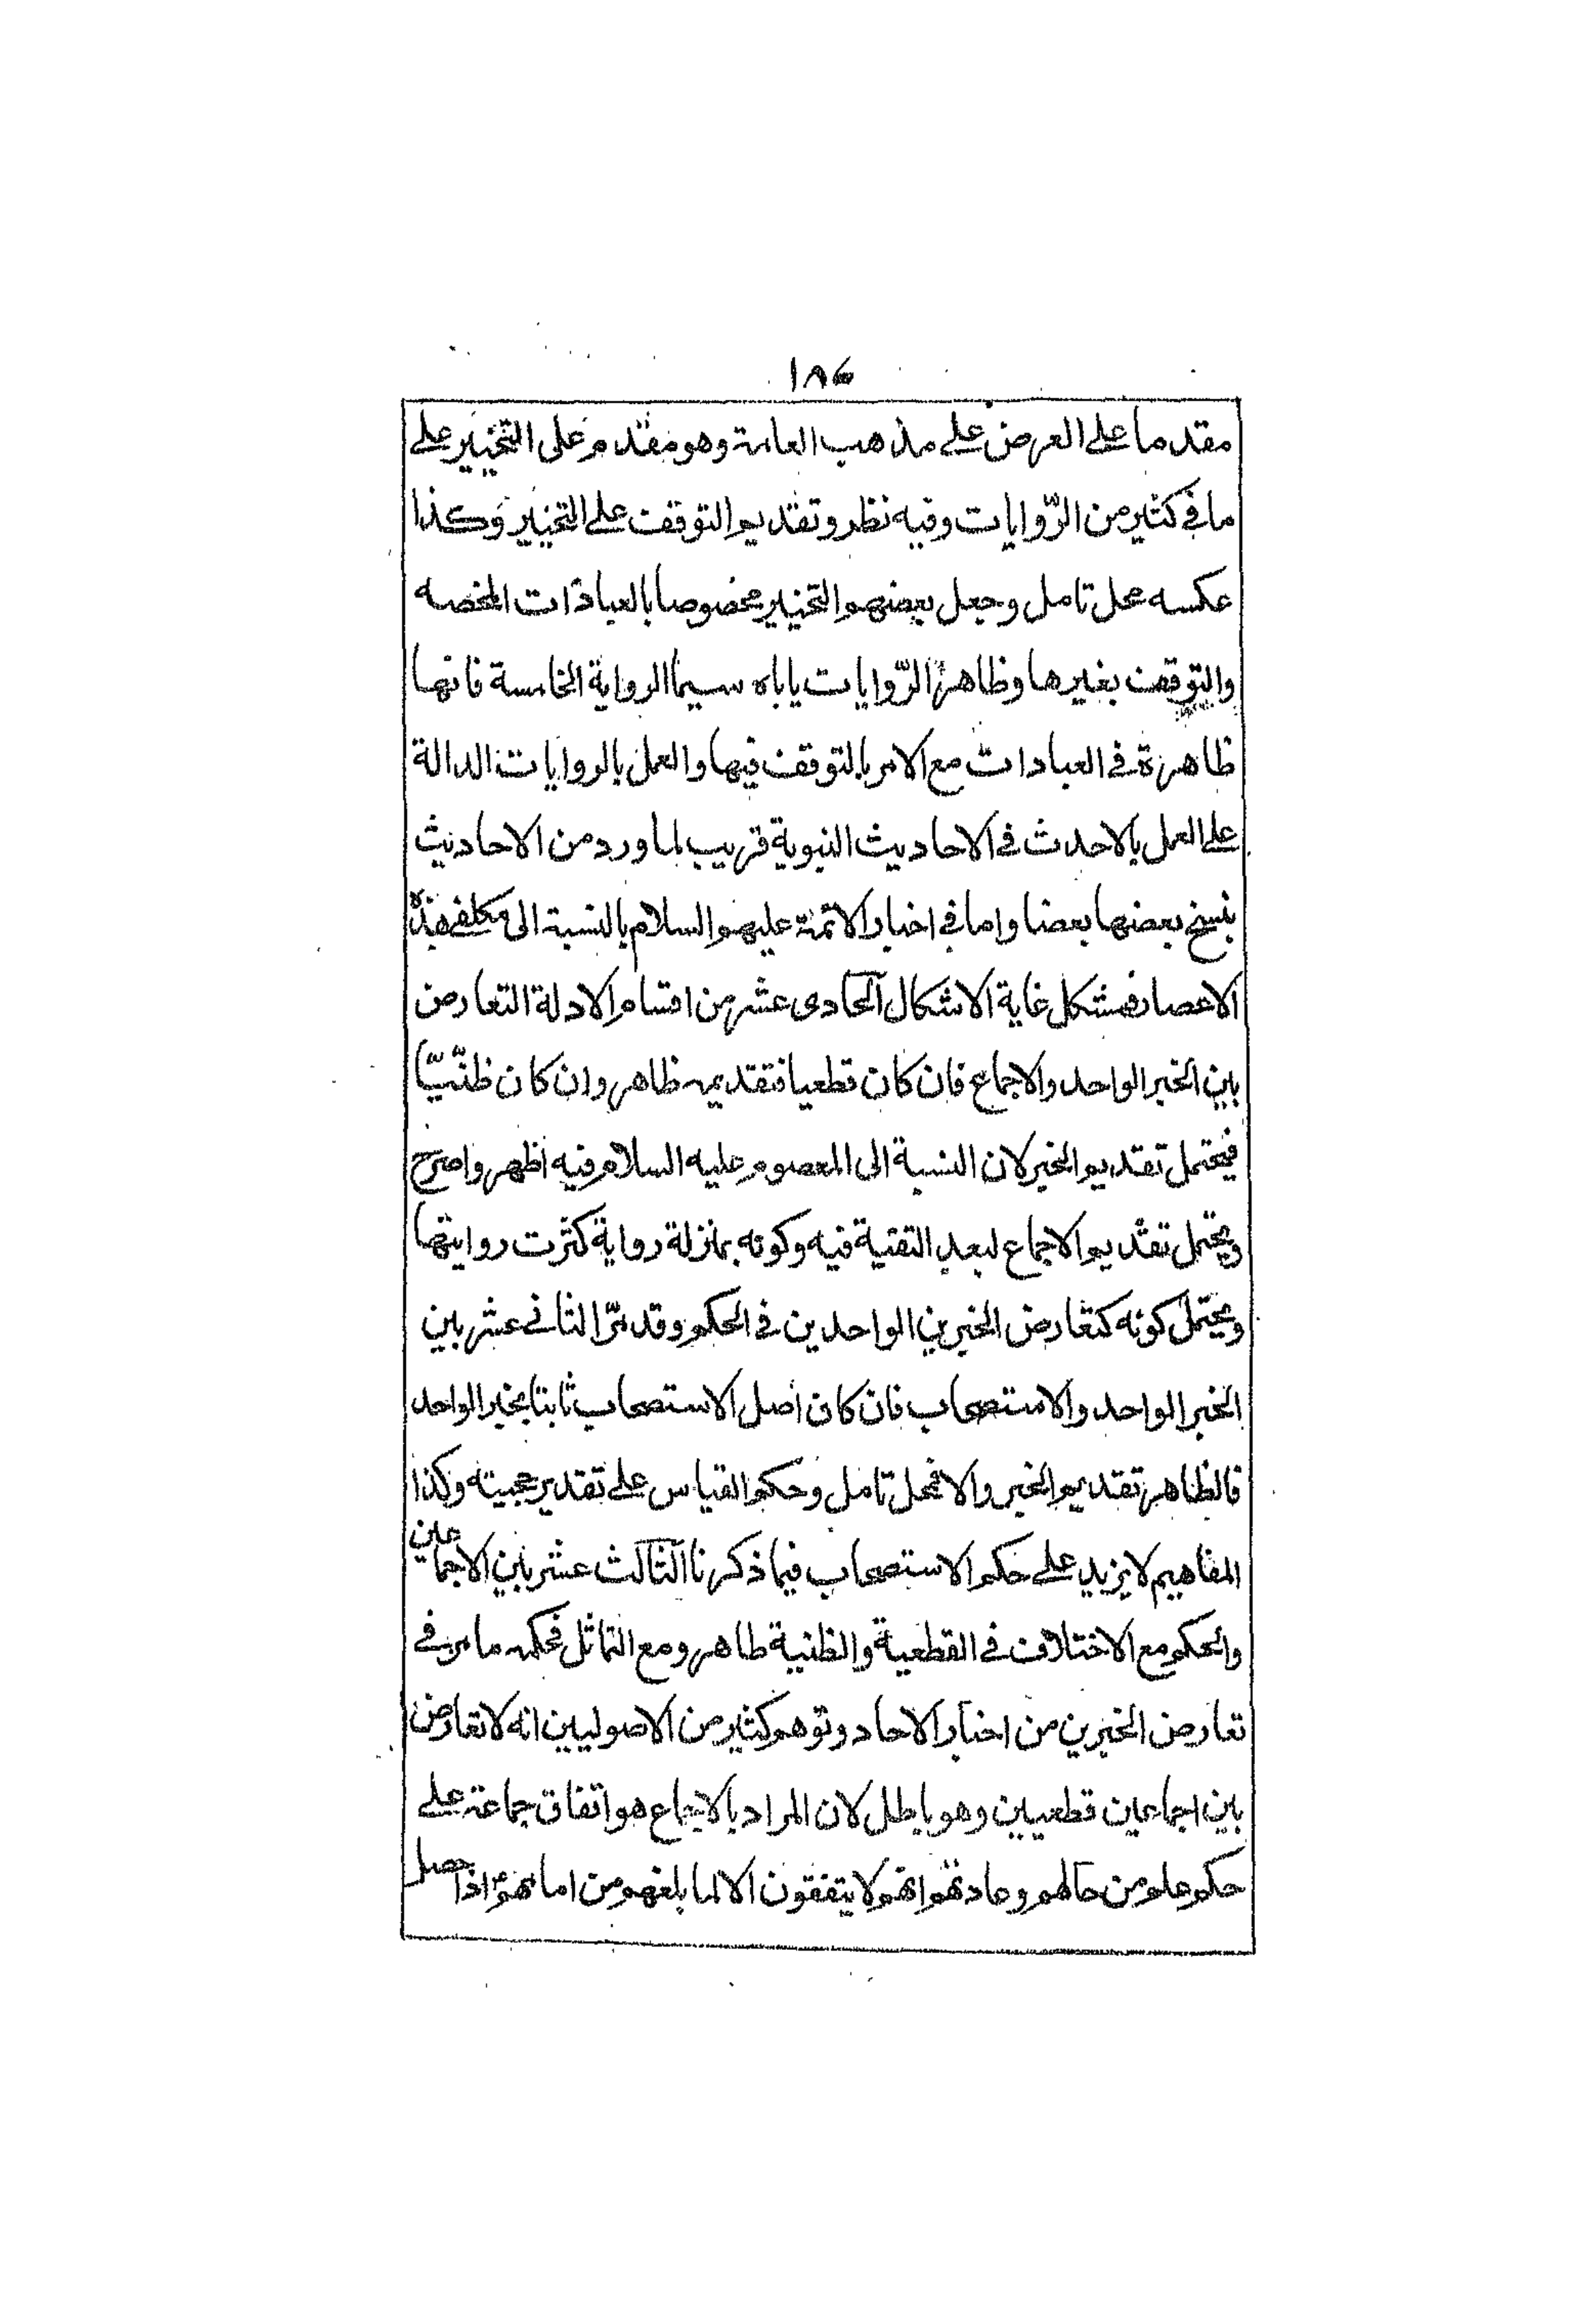 ١٨٦
مقدما على العرض على مذهب العامة وهو مقدم على التخيير على
ما في كثير من الرّوايات وفيه نظر وتقديم التوقف على التخيير وكذا
عكسه محل تامل وجعل بعضهم التخيير مخصوصا بالعبادات المخصه
والتوقف بغيرها وظاهر الرّوايات ياباه سيما الرواية الخامسة فانها
ظاهرة في العبادات مع الامر بالتوقف فيها والعمل بالروايات الدالة
على العمل بالاحدث في الاحاديث النبوية قريب لما ورد من الاحاديث
ينسخ بعضها بعضا واما في اخبار الائمة عليهم السلام بالنسبة الى مكلفي هذه
الاعصار فمشكل غاية الاشكال الحادى عشر من اقسام الادلة التعارض
بين الخبر الواحد والاجماع فان كان قطعيا فتقديمه ظاهر وان كان ظنّيّا
فيحتمل تقديم الخبر لان النسبة الى المعصوم عليه السلام فيه اظهر واصرح
ويحتمل تقديم الاجماع لبعد التقية فيه وكونه بمنزلة رواية كثرت روايتها
ويحتمل كونه كتعارض الخبرين الواحدين في الحكم وقد مرّ الثاني عشر بين
الخبر الواحد والاستصحاب فان كان اصل الاستصحاب ثابتا بخبر الواحد
فالظاهر تقديم الخبر والا فمحل تامل وحكم القياس على تقدير حجيته وكذا
المفاهيم لا يزيد على حكم الاستصحاب فيما ذكرنا الثالث عشر بين الاجماعين
والحكم مع الاختلاف في القطعية والظنية ظاهر ومع التماثل فحكمه ما مر في
تعارض الخبرين من اخبار الاحاد وتوهم كثير من الاصوليين انه لا تعارض
بين اجماعين قطعيين وهو باطل لان المراد بالاجماع هو اتفاق جماعة على
حكم علم من حالهم وعادتهم انهم لا يتفقون الا لما بلغهم من امامهم اذا حصل